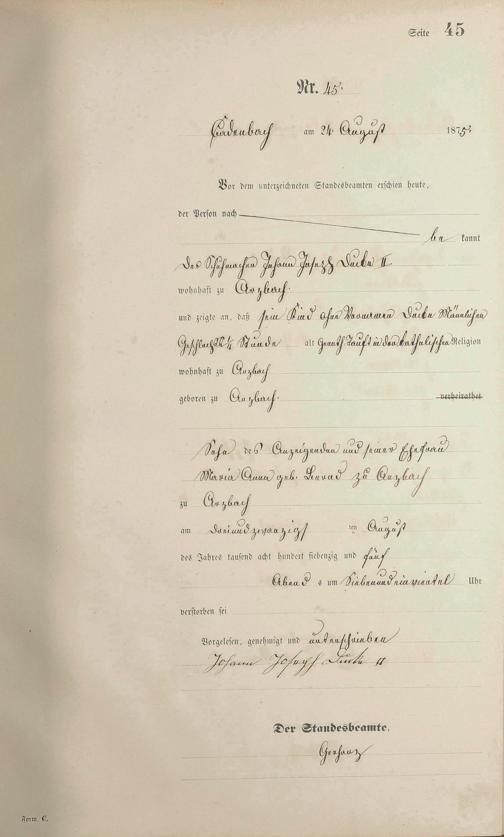 Seite 45
Nr. 45.
Cadenbach am 24 August 1875
Vor dem unterzeichneten Standesbeamten erschien heute,
der Person nach
be kannt
der Schuhmacher Johann Joseph II
wohnhaft zu Arzbach
und zeigte an, daß sein Kind ohne Vornamen Männlichen
Geschlechts ¼ Stunde alt getauft in der katholischen Religion
wohnhaft zu Arzbach
geboren zu Arzbach verheirathet
Sohn des Anzeigenden und seiner Ehefrau
Maria Anna geb. zu Arzbach
zu Arzbach
am dreiundzwanzigst ten August
des Jahres tausend acht hundert siebenzig und fünf
Abend s um Sieben und ein viertel Uhr
verstorben sei
Vorgelesen, genehmigt und unterschrieben
Johann Joseph II
Der Standesbeamte.
Form. C.